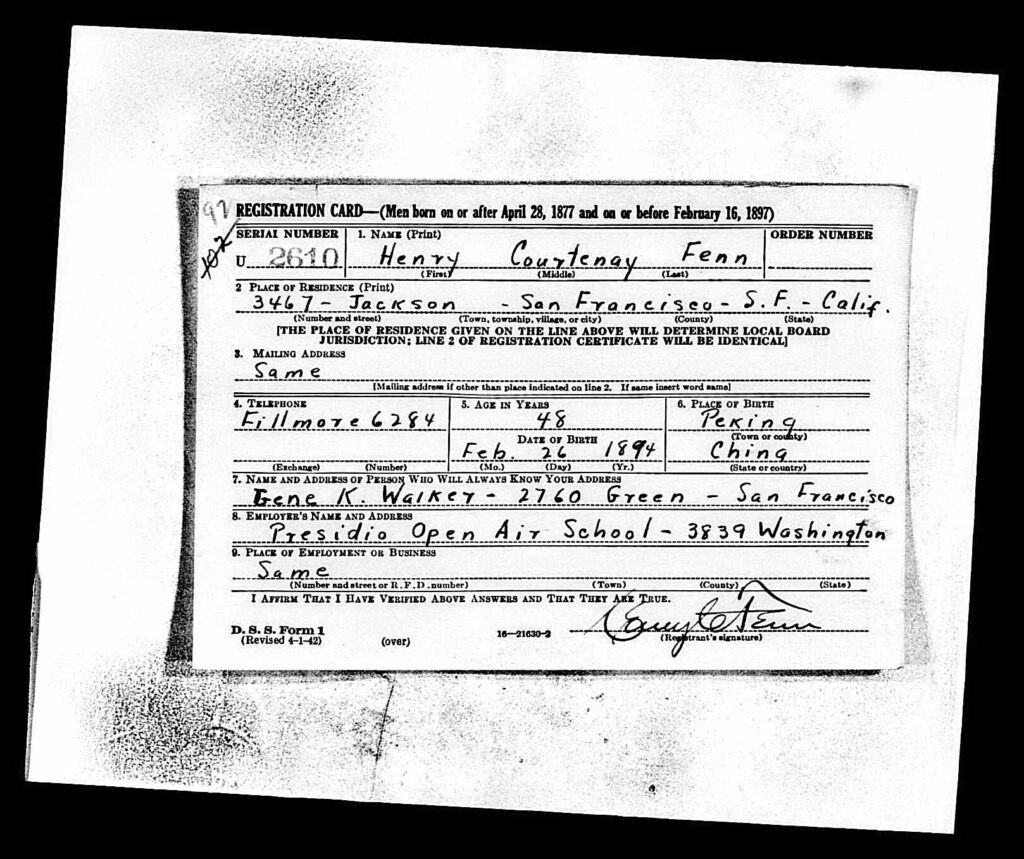 97
102
REGISTRATION CARD—(Men born on or after April 28, 1877 and on or before February 16, 1897)
SERIAL NUMBER 1. NAME (Print) ORDER NUMBER
U 2610 Henry Courtenay Fenn
(First) (Middle) (Last)
2 PLACE OF RESIDENCE (Print)
3467 - Jackson - San Francisco - S.F. - Calif.
(Number and street) (Town, township, village, or city) (County) (State)
[THE PLACE OF RESIDENCE GIVEN ON THE LINE ABOVE WILL DETERMINE LOCAL BOARD
JURISDICTION; LINE 2 OF REGISTRATION CERTIFICATE WILL BE IDENTICAL]
3. MAILING ADDRESS
Same
[Mailing address if other than place indicated on line 2. If same insert word same]
4. TELEPHONE 5. AGE IN YEARS 6. PLACE OF BIRTH
Fillmore 6284 48 Peking
DATE OF BIRTH (Town or county)
Feb. 26 1894 China
(Exchange) (Number) (Mo.) (Day) (Yr.) (State or country)
7. NAME AND ADDRESS OF PERSON WHO WILL ALWAYS KNOW YOUR ADDRESS
Gene K. Walker - 2760 Green - San Francisco
8. EMPLOYER'S NAME AND ADDRESS
Presidio Open Air School - 3839 Washington
9. PLACE OF EMPLOYMENT OR BUSINESS
Same
(Number and street or R. F. D. number) (Town) (County) (State)
I AFFIRM THAT I HAVE VERIFIED ABOVE ANSWERS AND THAT THEY ARE TRUE.
Henry C Fenn
D. S. S. Form 1
(Revised 4-1-42) (over) 16—21630-2 (Registrant's signature)